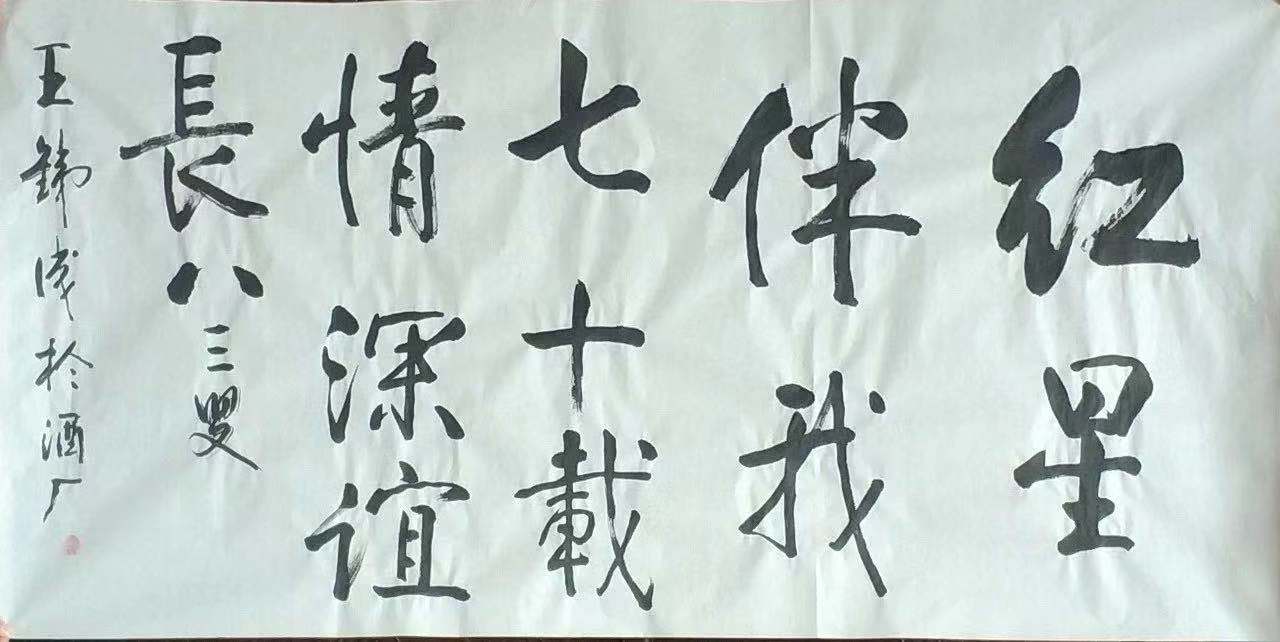 红星
伴我
七十載
情深谊
長八三叟
王於酒厂